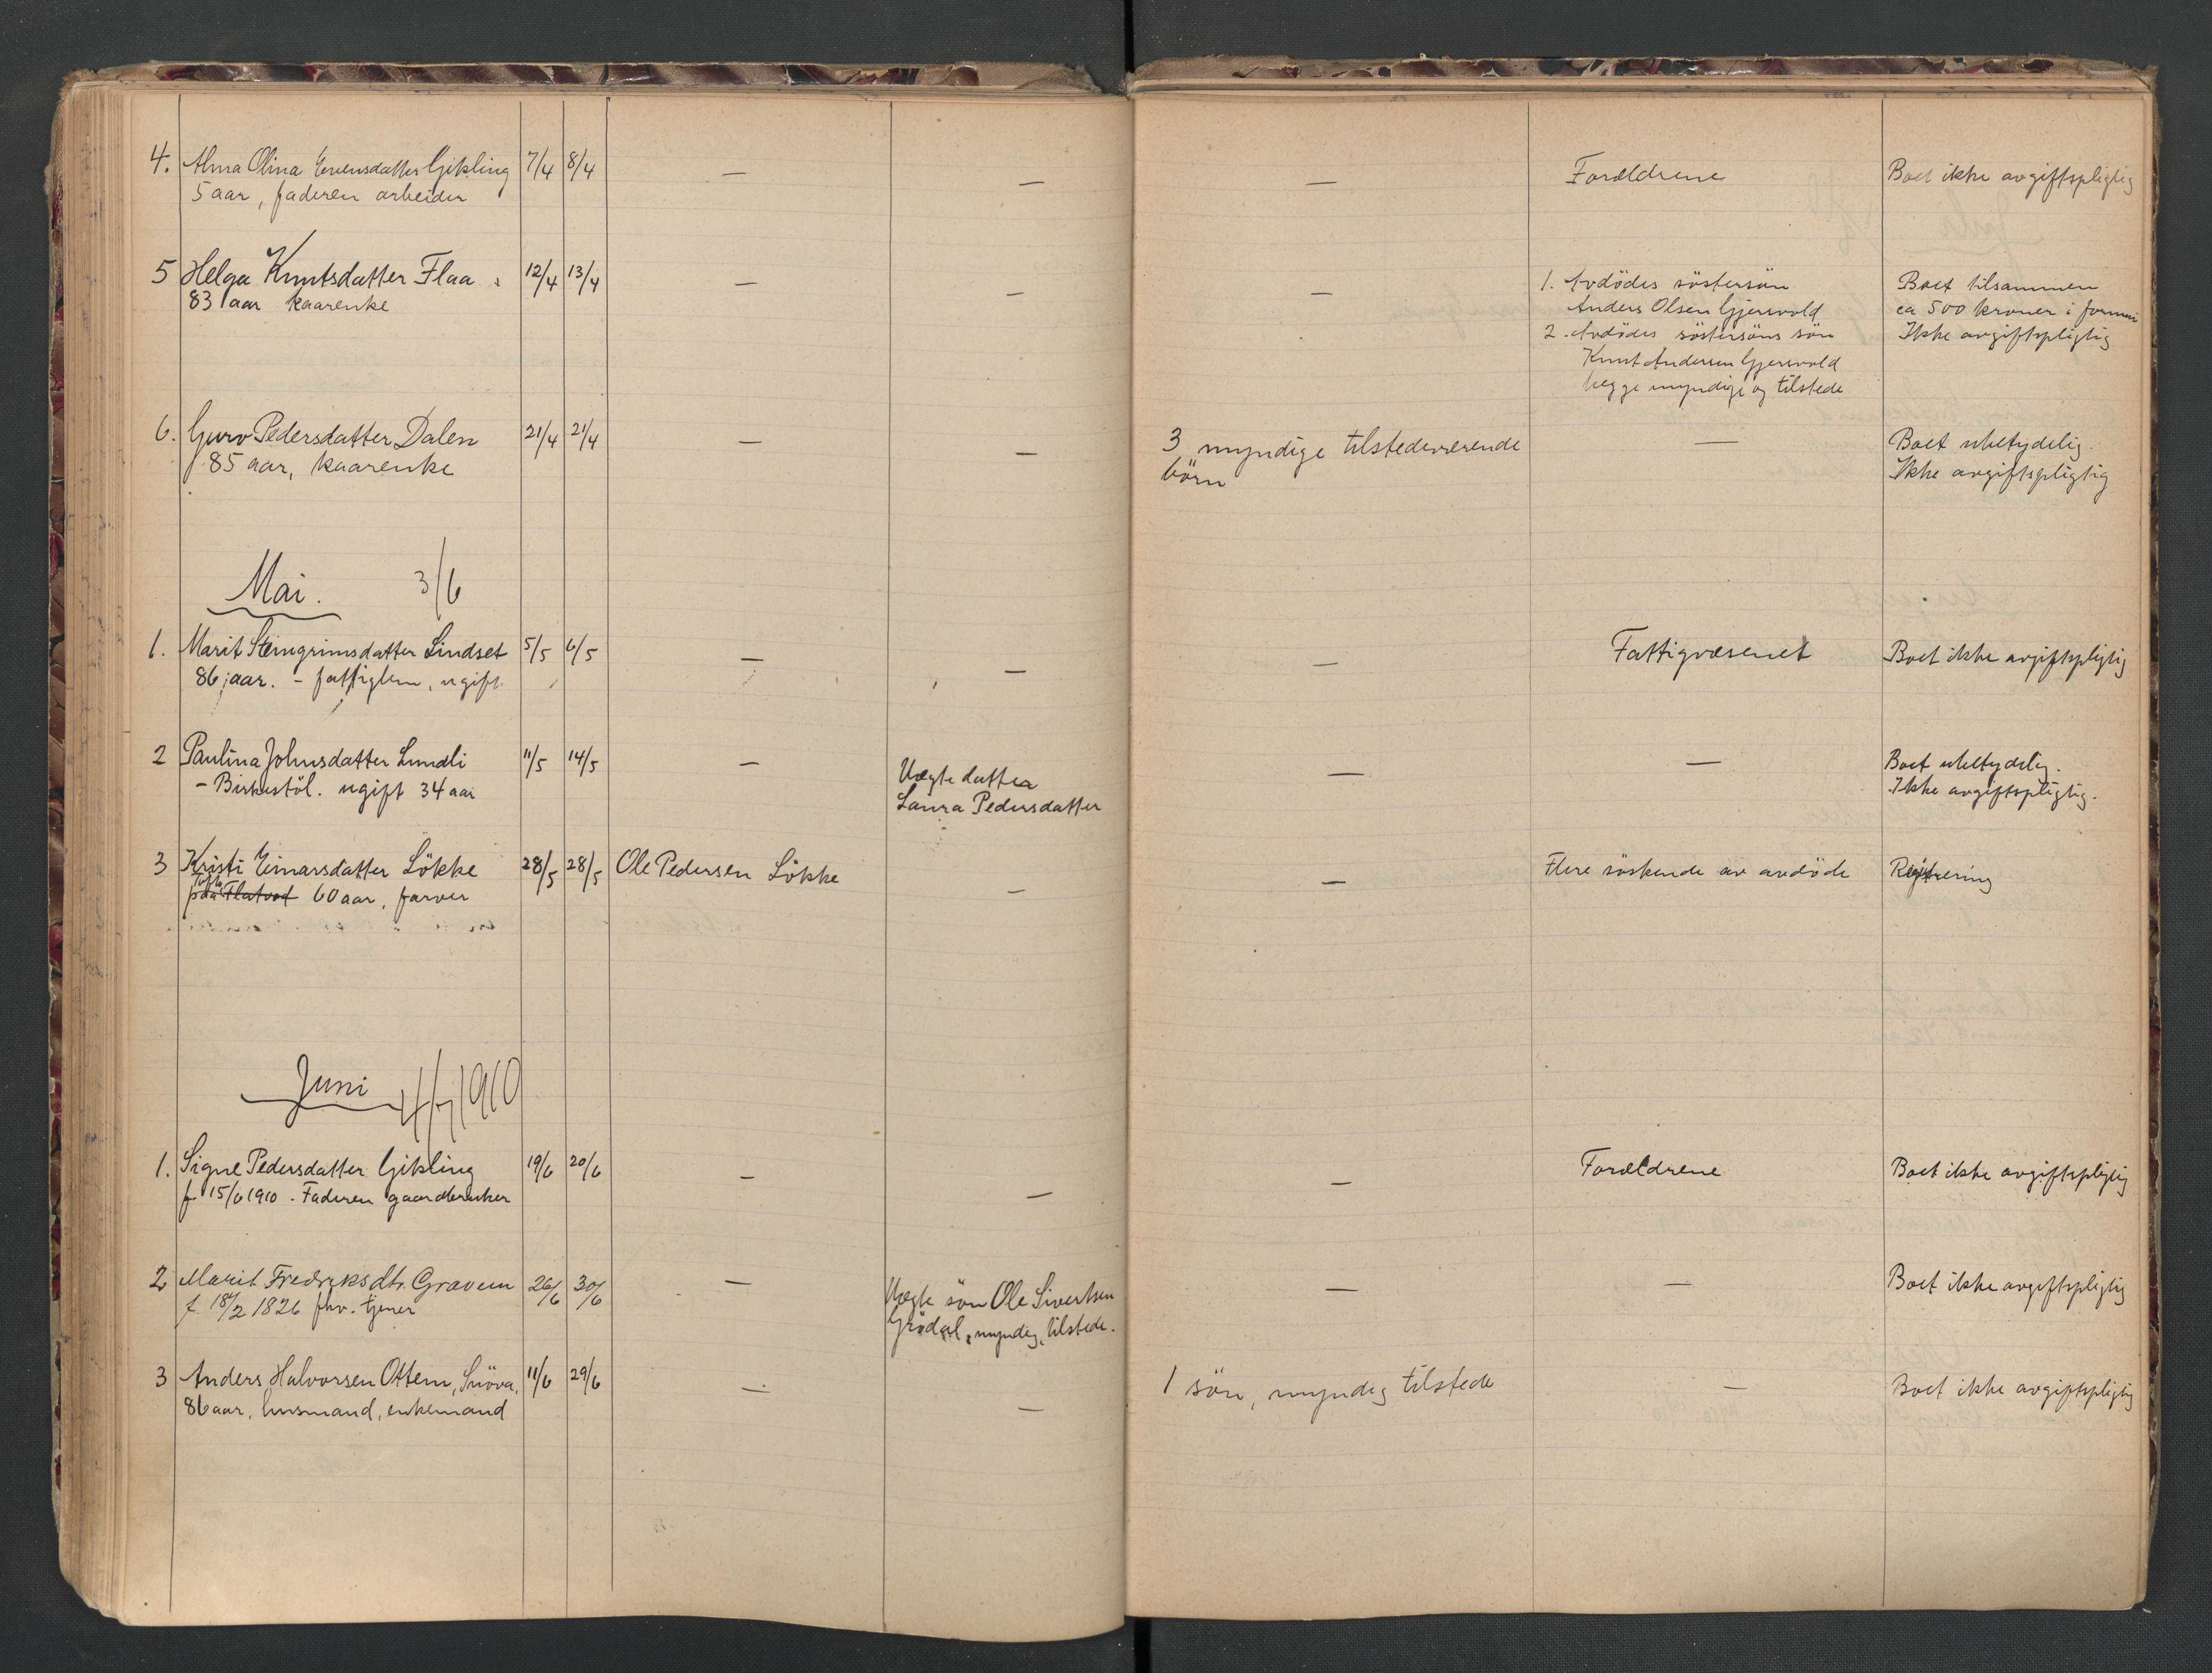 4. Alma Olina Evensdatter Gikling 7/4 8/4 — — — Forældrene Boet ikke avgiftspligtig
5 aar, faderen arbeider
5 Helga Knutsdatter Flaa 12/4 13/4 — — — 1. Avdödes söstersön Boet tilsammen
83 aar kaarenke Anders Olsen Gjersvold ca 500 kroner i formue
2. Avdödes söstersöns sön Ikke avgiftspligtig
Knut Andersen Gjersvold
begge myndige og tilstede
6. Guro Pedersdatter Dalen 21/4 21/4 — — 3 myndige tilstedeværende — Boet ubetydelig.
85 aar, kaarenke börn Ikke avgiftspligtig
Mai. 3/6
1. Marit Steingrimsdatter Lindset 5/5 6/5 — — — Fattigvæsenet Boet ikke avgiftspligtig
86 aar. - fattiglem, ugift.
2 Paulina Johnsdatter Lundli 11/5 14/5 — Uægte datter — — Boet ubetydelig.
- Birkestöl. ugift 34 aar Laura Pedersdatter Ikke avgiftspligtig.
3 Kristi Einarsdatter Lökke 28/5 28/5 Ole Pedersen Lökke — — Flere söskende av avdöde Registrering
paa Flatvad 60 aar, farver
Juni 4/7 1910
1. Signe Pedersdatter Gikling 19/6 20/6 — — — Forældrene Boet ikke avgiftspligtig
f 15/6 1910 - Faderen gaardbruker
2 Marit Fredriksdtr. Gravem 26/6 30/6 — Uægte sön Ole Sivertsen — — Boet ikke avgiftspligtig
f. 18/2 1826 fhv. tjener Grödal, myndig, tilstede.
3 Anders Halvorsen Ottem, Snöva, 11/6 29/6 — — 1 sön, myndig tilstede — Boet ikke avgiftspligtig
86 aar, husmand, enkemand